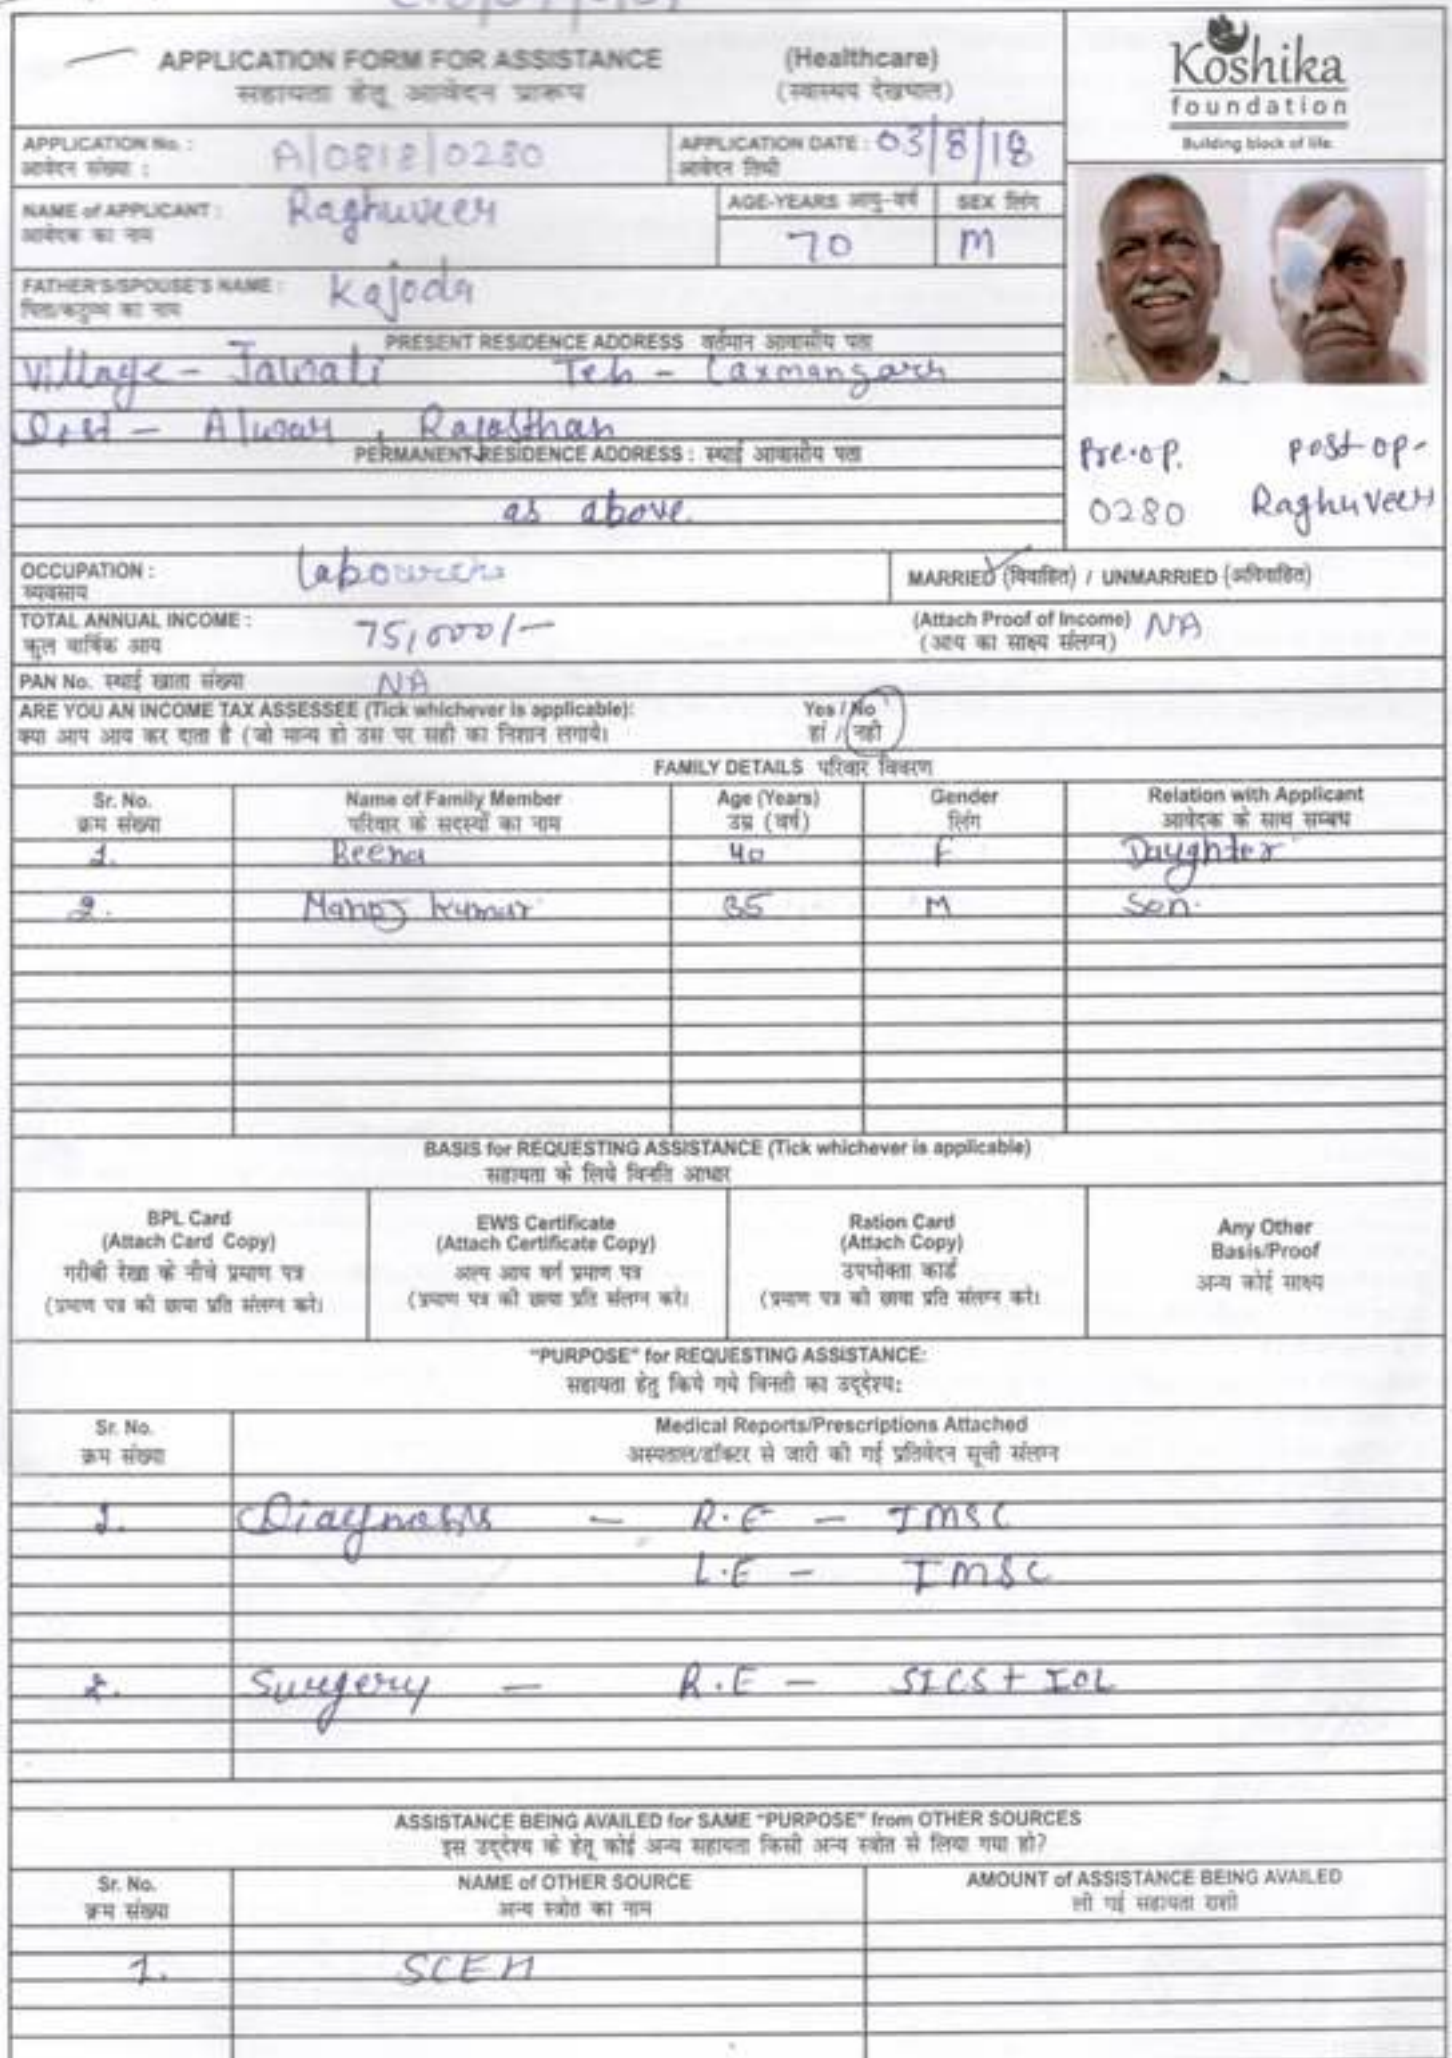 APPLICATION FORM FOR ASSISTANCE (Healthcare)
सहायता हेतू आवेदन प्रारूप (स्वास्थय देखभाल)
Koshika
foundation
Building block of life.
APPLICATION No. : A/0818/0280 APPLICATION DATE : 03/8/18
आवेदन संख्या : आवेदन तिथी
NAME of APPLICANT : Raghuveer AGE-YEARS आयु-वर्ष SEX लिंग
आवेदक का नाम 70 M
FATHER'S/SPOUSE'S NAME : Kajoda
पिता/कटुम्ब का नाम
PRESENT RESIDENCE ADDRESS वर्तमान आवासीय पता
Village - Jawali Teh - Laxmangarh
Dist - Alwar , Rajasthan
PERMANENT RESIDENCE ADDRESS : स्थाई आवासीय पता
as above.
Pre-op. post-op-
0280 Raghuveer
OCCUPATION : labourer
व्यवसाय
MARRIED (विवाहित) / UNMARRIED (अविवाहित)
TOTAL ANNUAL INCOME : 75,000/- (Attach Proof of Income) NA
कुल वार्षिक आय (आय का साक्ष्य संलग्न)
PAN No. स्थाई खाता संख्या NA
ARE YOU AN INCOME TAX ASSESSEE (Tick whichever is applicable): Yes / No
क्या आप आय कर दाता है (जो मान्य हो उस पर सही का निशान लगाये। हां / नही
FAMILY DETAILS परिवार विवरण
Sr. No. Name of Family Member Age (Years) Gender Relation with Applicant
क्रम संख्या परिवार के सदस्यों का नाम उम्र (वर्ष) लिंग आवेदक के साथ सम्बध
1. Reena 40 F Daughter
2. Manoj Kumar 35 M Son.
BASIS for REQUESTING ASSISTANCE (Tick whichever is applicable)
सहायता के लिये विनति आधार
BPL Card
(Attach Card Copy)
गरीबी रेखा के नीचे प्रमाण पत्र
(प्रमाण पत्र की छाया प्रति संलग्न करे।
EWS Certificate
(Attach Certificate Copy)
अल्प आय वर्ग प्रमाण पत्र
(प्रमाण पत्र की छाया प्रति संलग्न करे।
Ration Card
(Attach Copy)
उपभोक्ता कार्ड
(प्रमाण पत्र की छाया प्रति संलग्न करे।
Any Other
Basis/Proof
अन्य कोई साक्ष्य
"PURPOSE" for REQUESTING ASSISTANCE:
सहायता हेतु किये गये विनती का उद्देश्य:
Sr. No. Medical Reports/Prescriptions Attached
क्रम संख्या अस्पताल/डॉक्टर से जारी की गई प्रतिवेदन सूची संलग्न
1. Diagnosis - R.E - IMSC
L.E - IMSC
2. Surgery - R.E - SICS + IOL
ASSISTANCE BEING AVAILED for SAME "PURPOSE" from OTHER SOURCES
इस उद्देश्य के हेतू कोई अन्य सहायता किसी अन्य स्त्रोत से लिया गया हो?
Sr. No. NAME of OTHER SOURCE AMOUNT of ASSISTANCE BEING AVAILED
क्रम संख्या अन्य स्त्रोत का नाम ली गई सहायता राशी
1. SCEH